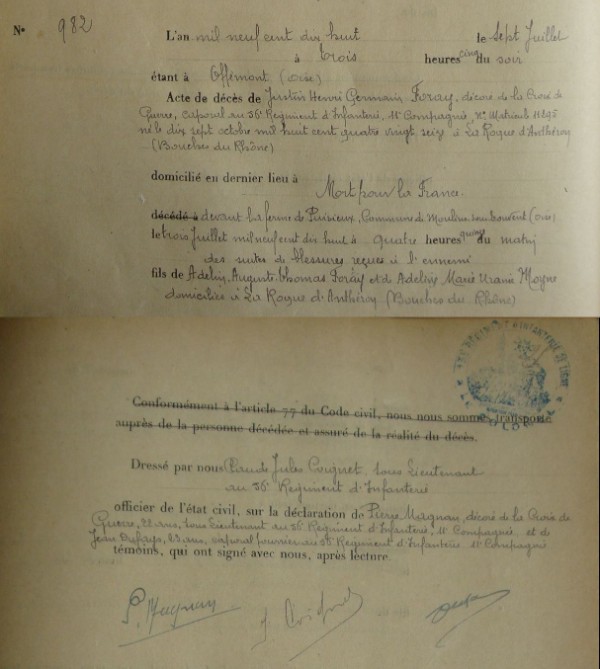 N° 982
L'an mil neuf cent dix huit le sept Juillet
à trois heures cinq du soir
étant à Offémont (Oise)
Acte de décès de Justin Henri Germain Foray, décoré de la Croix de
Guerre, caporal au 36e Régiment d'Infanterie, 11e Compagnie, No Matricule 11895
né le dix sept octobre mil huit cent quatre vingt seize à La Roque d'Anthéron
(Bouches du Rhône)
domicilié en dernier lieu à
Mort pour la France
décédé à devant la ferme de Puisieux, Commune de Moulin sous Touvent (Oise)
le trois Juillet mil neuf cent dix huit à quatre heures quinze du matin
des suites de blessures reçues à l'ennemi
fils de Adelin Auguste Thomas Foray et de Adeline Marie Uranie Moyne
domiciliés à La Roque d'Anthéron (Bouches du Rhône)
Conformément à l'article 77 du Code civil, nous nous sommes transporté
auprès de la personne décédée et assuré de la réalité du décès.
Dressé par nous Jules Coignet sous Lieutenant
au 36e Régiment d'Infanterie
officier de l'état civil, sur la déclaration de Pierre Magnan, décoré de la Croix de
Guerre, 22 ans, sous Lieutenant au 36e Régiment d'Infanterie, 11e Compagnie et de
Jean 23 ans, caporal fourrier au 36e Régiment d'Infanterie 11e Compagnie
témoins, qui ont signé avec nous, après lecture.
P. Magnan J. Coignet